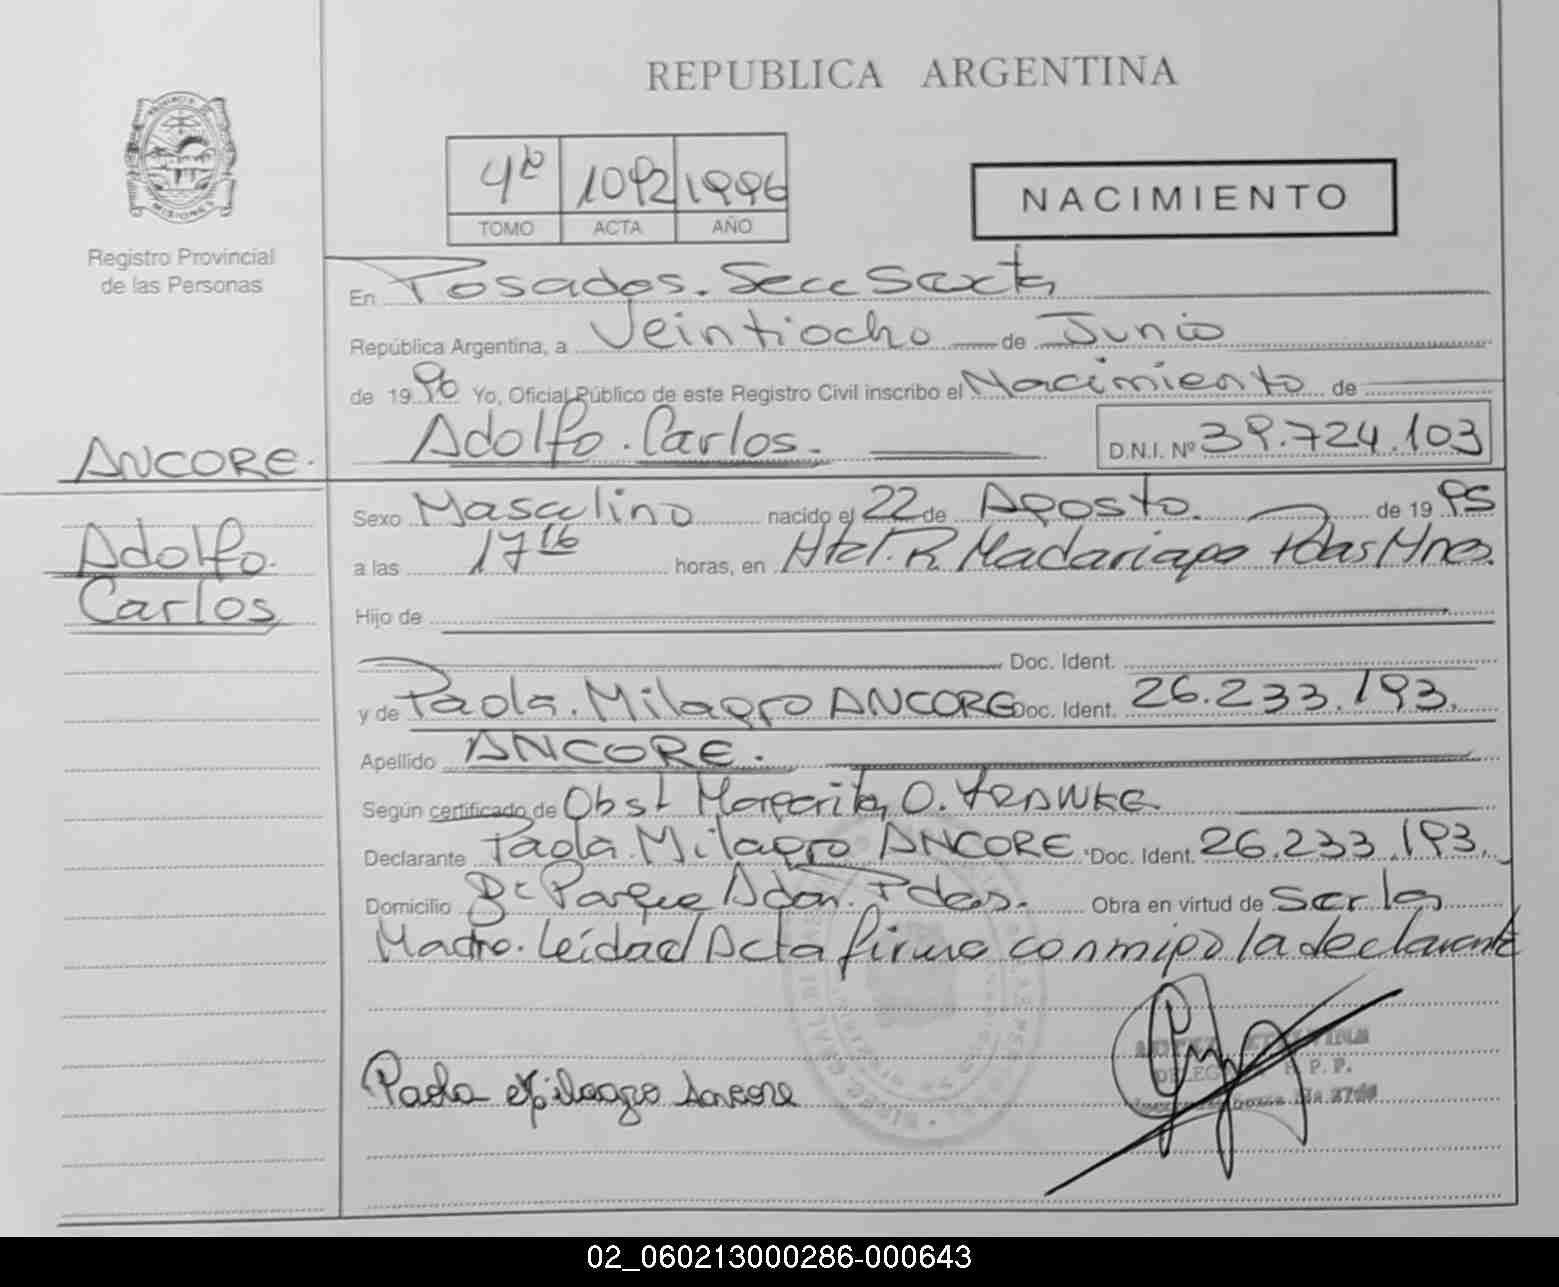 REPUBLICA ARGENTINA
PROVINCIA DE
MISIONES
Registro Provincial
de las Personas
4to 1092 1996
TOMO ACTA AÑO
NACIMIENTO
En Posadas. Secc Sexta
República Argentina, a Veintiocho de Junio
de 1996 Yo, Oficial Público de este Registro Civil inscribo el Nacimiento de
Adolfo. Carlos. D.N.I. Nº 39.724.103
ANCORE.
Adolfo.
Carlos
Sexo Masculino nacido el 22 de Agosto. de 1995
a las 17 16 horas, en Htal. R. Madariaga Pdas Mnes.
Hijo de
Doc. Ident.
y de Paola. Milagro ANCORE Doc. Ident. 26.233.193.
Apellido ANCORE.
Según certificado de Obst Margarita O.
Declarante Paola. Milagro ANCORE Doc. Ident. 26.233.193.
Domicilio Bº Parque Adam. Pdas. Obra en virtud de ser la
Madre. Leída el Acta firma conmigo la declarante
Paola Milagro Ancore
R. P. P.
02_060213000286-000643